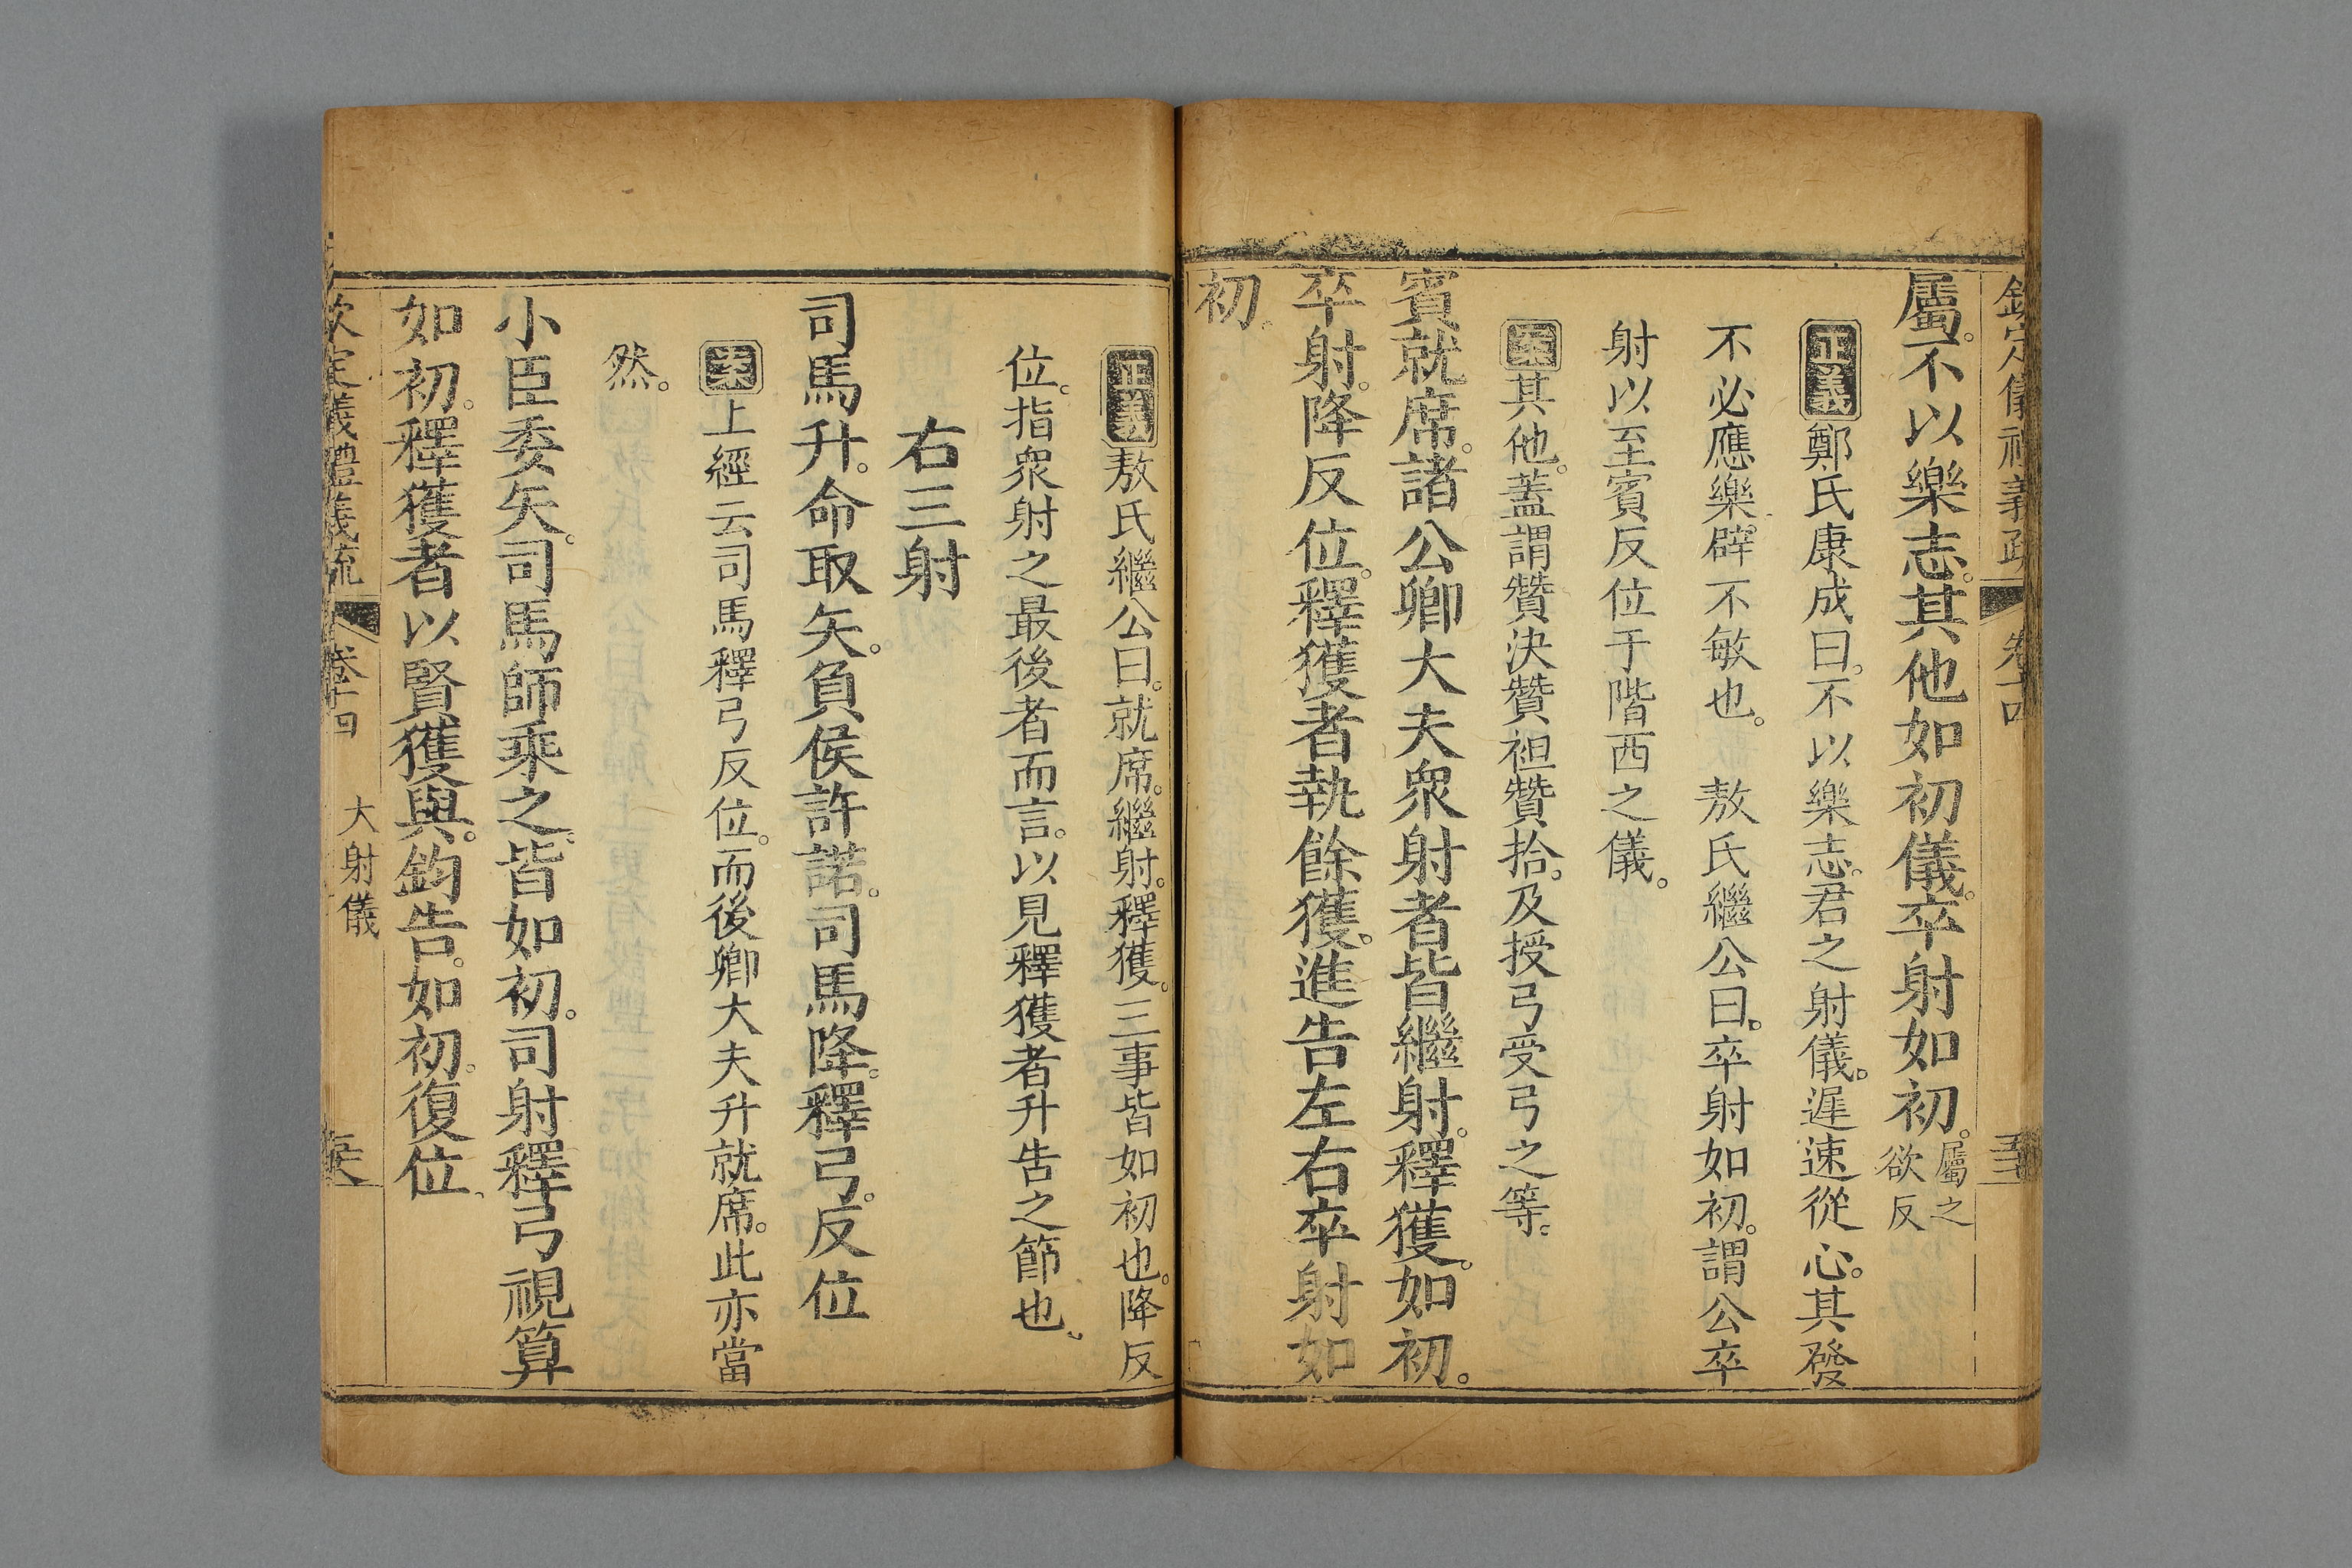 欽定儀禮義疏 卷十四
屬。不以樂志。其他如初儀。卒射如初。屬之欲反
正義鄭氏康成曰。不以樂志。君之射儀。遲速從心。其發
不必應樂。辟不敏也。 敖氏繼公曰。卒射如初。謂公卒
射以至賓反位于階西之儀。
案其他。蓋謂贊決贊袒贊拾。及授弓受弓之等。
賓就席。諸公卿大夫衆射者皆繼射。釋獲。如初。
卒射。降反位。釋獲者執餘獲。進告左右卒射如
初。
正義敖氏繼公曰。就席。繼射。釋獲。三事皆如初也。降反
位。指衆射之最後者而言。以見釋獲者升告之節也。
右三射
司馬升。命取矢。負侯許諾。司馬降。釋弓。反位
案上經云司馬釋弓反位。而後卿大夫升就席。此亦當
然。
小臣委矢。司馬師乘之。皆如初。司射釋弓視算
如初。釋獲者以賢獲與。鈞告。如初。復位。
欽定儀禮義疏 卷十四 大射儀